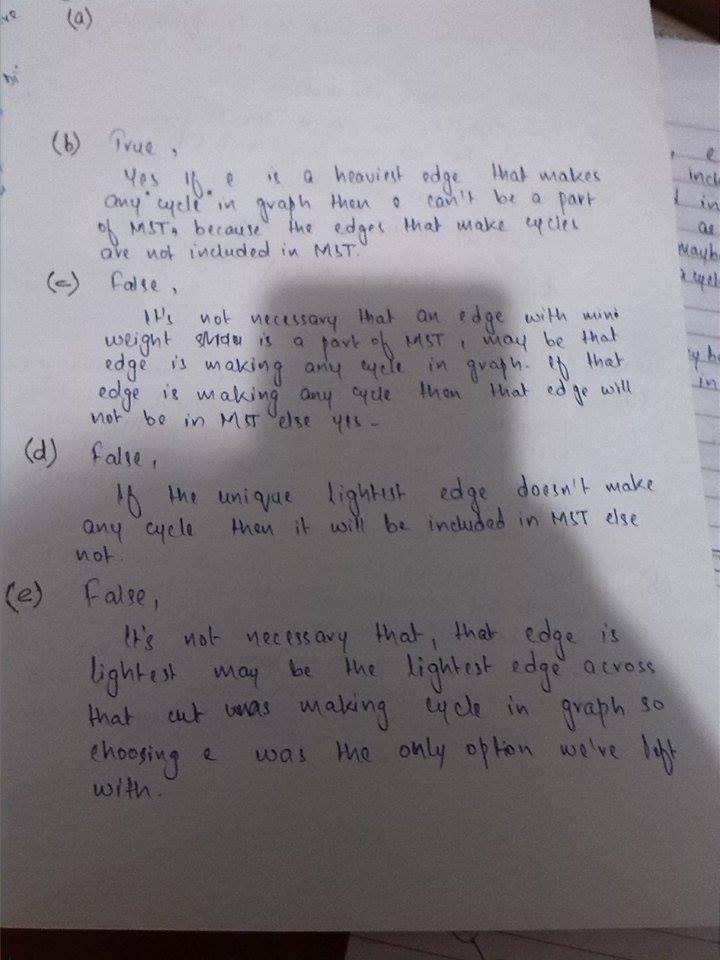 (a)
(b) True,
Yes If e is a heaviest edge that makes
any cycle in graph then e can't be a part
of MST, because the edges that make cycles
are not included in MST.
(c) False,
It's not necessary that an edge with mini
weight is a part of MST, may be that
edge is making any cycle in graph. If that
edge is making any cycle then that edge will
not be in MST else yes-
(d) False,
If the unique lightest edge doesn't make
any cycle then it will be included in MST else
not.
(e) False,
It's not necessary that, that edge is
lightest may be the lightest edge across
that cut was making cycle in graph so
choosing e was the only option we've left
with.
e
incl
in
as
mayb
in